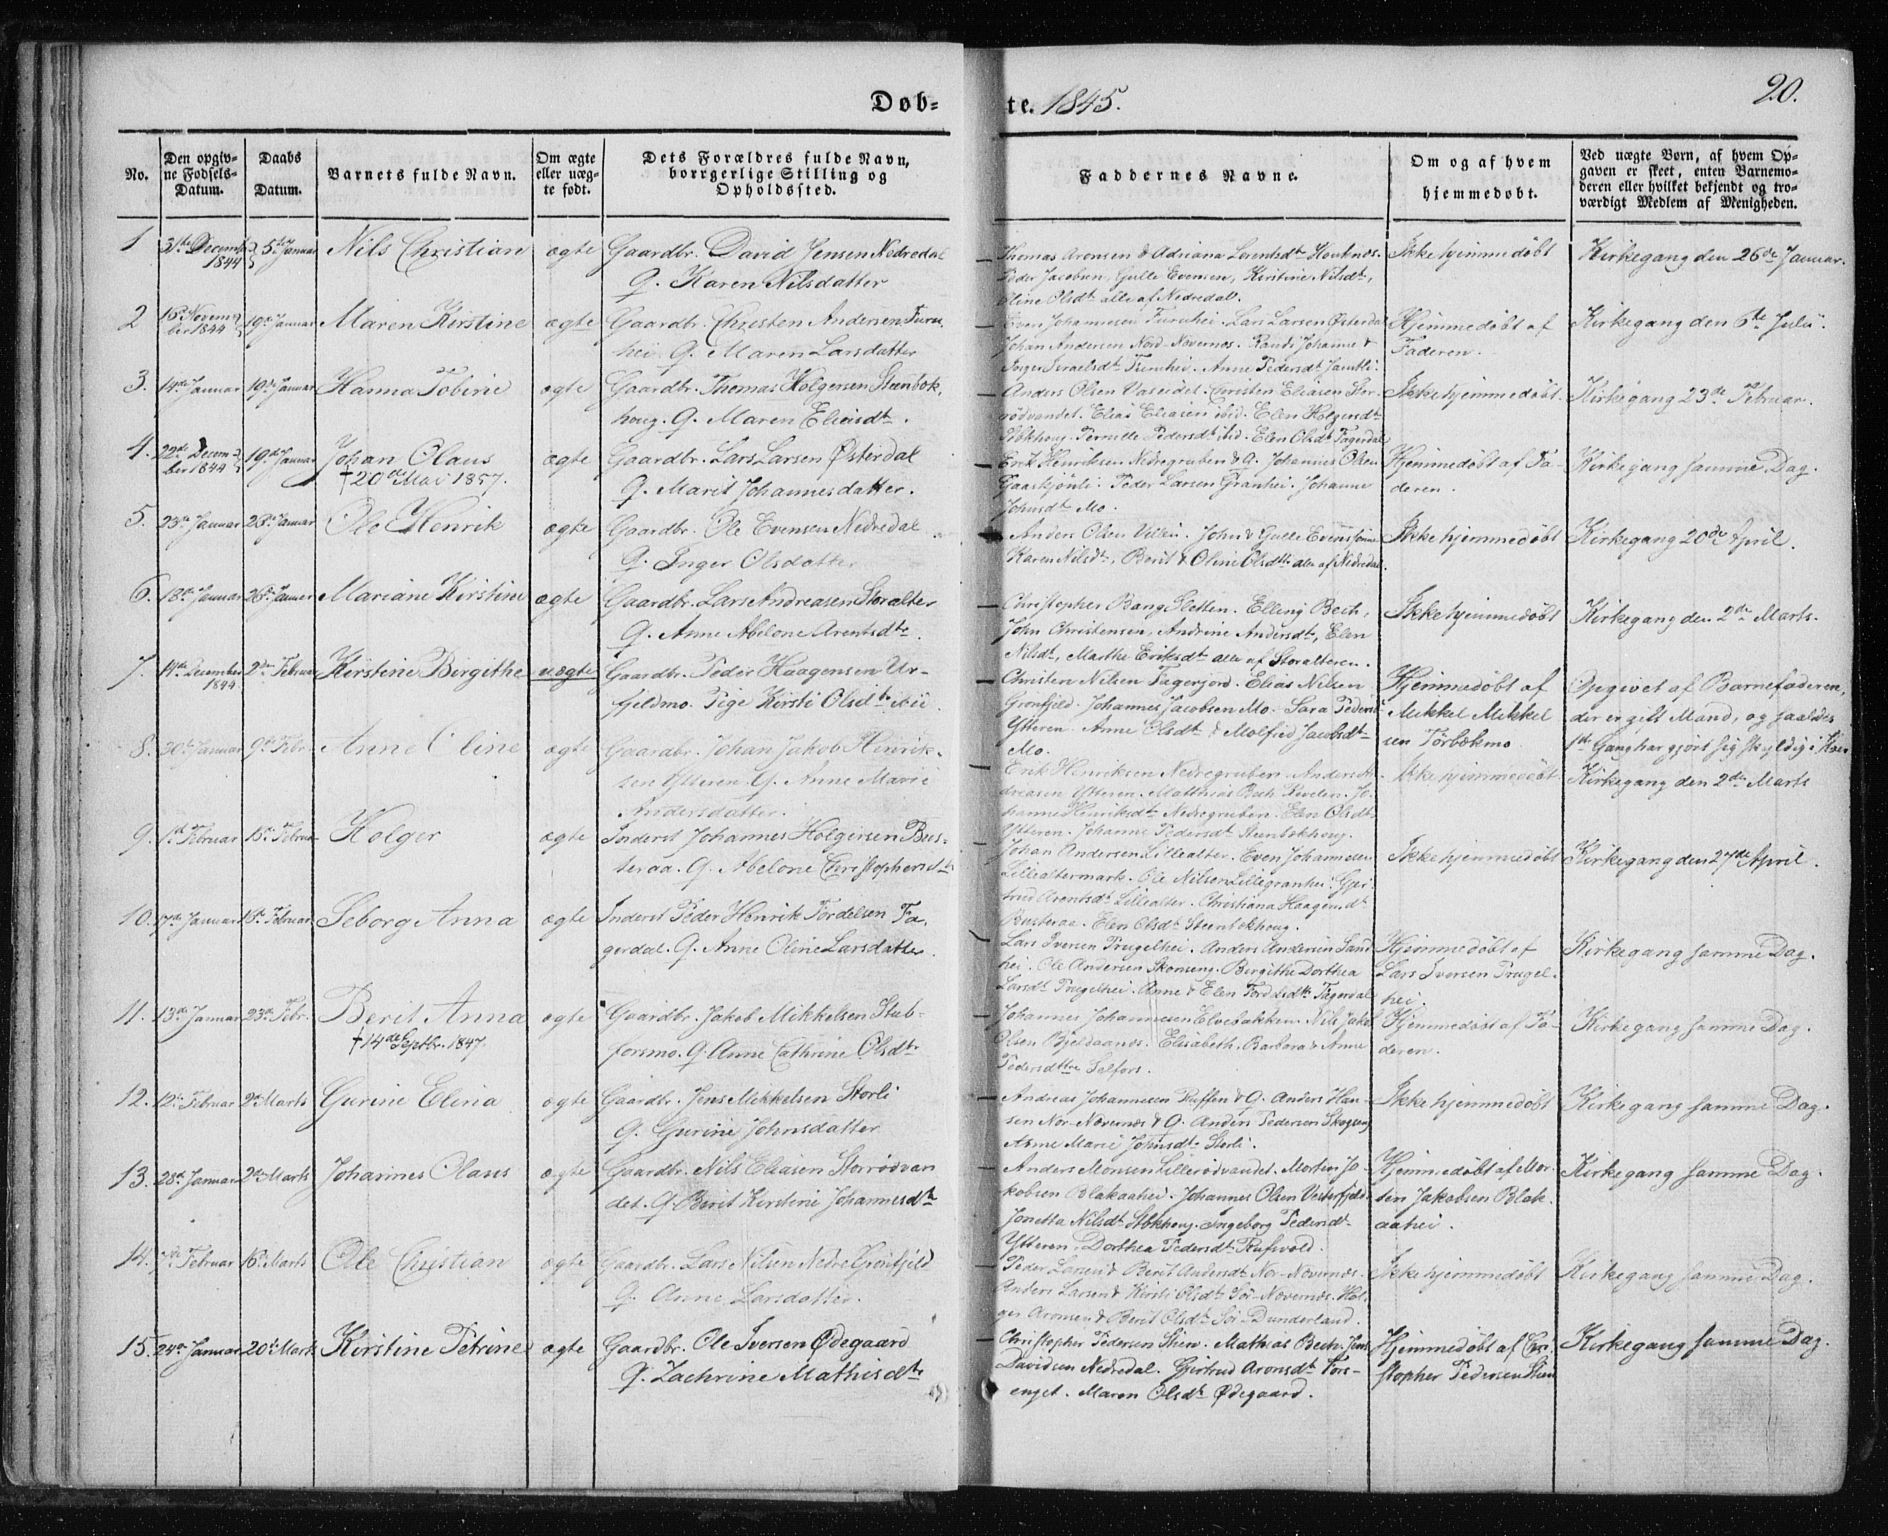 Døb-
te. 1845.
20.
No.
Den opgiv-
ne Fødsels-
Datum.
Daabs
Datum.
Barnets fulde Navn.
Om ægte
eller uæg-
te født.
Dets Forældres fulde Navn,
borgerlige Stilling og
Opholdssted.
Faddernes Navne.
Om og af hvem
hjemmedøbt.
Ved uægte Børn, af hvem Op-
gaven er skeet, enten Barnemo-
deren eller hvilket bekjendt og tro-
værdigt Medlem af Menigheden.
1 31te Decemb. 1844 5te Januar Nils Christian ægte Gaardbr. David Jensen Nedredal
Q. Karen Nilsdatter
Thomas Aronsen & Adriana Lorentsdt.
Peder Jacobsen, Gulle Evensen, Kirstine Nilsdt,
Eline Olsdt alle af Nedredal.
Ikke hjemmedøbt
Kirkegang den 26de Januar.
2 15de Novem-
ber 1844 19de Januar Maren Kirstine ægte Gaardbr. Christen Andersen Furu-
hei Q. Maren Larsdatter
Even Johannesen Furuhei. Lars Larsen Østerdal
Johan Andersen Nord-Nævernæs. Randi Johanne &
Inger Israelsdt Furuhei. Anne Pedersdt
Hjemmedøbt af
Faderen.
Kirkegang den 6te Julii.
3. 14de Januar 19de Januar Hanna Tobine ægte Gaardbr. Thomas Holgersen Steenbok-
houg. Q. Maren Eliasdt.
Anders Olsen Vaserdet. Christen Eliasen Stor-
rødvandet. Elias Eliasen ibid. Elen Holgersdt
Stbkhoug. Pernille Pedersdt ibid. Elen Olsdt Fagerdal
Ikke hjemmedøbt.
Kirkegang 23de Februar.
4. 22de Decem-
ber 1844 19de Januar Johan Olaus
† 20de Mai 1857.
ægte Gaardbr. Lars Larsen Østerdal
Q. Marit Johannesdatter.
Erik Henriksen Nedregruben & Q. Johannes Olsen
Gaaskjønli. Peder Larsen Granhei. Johanne
Johnsdt Mo.
Hjemmedøbt af Fa-
deren.
Kirkegang samme Dag.
5. 23de Januar 23de Januar Ole Henrik ægte Gaardbr. Ole Evensen Nedredal
Q. Inger Olsdatter
Anders Olsen . John & Gulle Evensønner
Karen Nilsdt, Berit & Oline Olsdtr alle af Nedredal.
Ikke hjemmedøbt
Kirkegang 20de April.
6. 18de Januar 26de Januar Mariane Kirstine ægte Gaardbr. Lars Andreasen Storalter
Q. Anne Abelone Arentsdt.
Christopher Bang Sletten. Elling Bech,
John Christensen, Andrine Andersdt, Elen
Nilsdt, Marthe Eriksdt alle af Storalteren.
Ikke hjemmedøbt
Kirkegang den 2de Marts.
7. 14de December
1844 2de Februar Kirstine Birgithe uægte Gaardbr. Peder Haagensen Ur-
fjeldmo. Pige Kirsti Olsdt ibid.
Christen Nilsen Fagerjord. Elias Nilsen
Grønfjeld. Johannes Jacobsen Mo. Sara Pedersd
Ytteren. Anne Olsdt & Molfrid Jacobsdt
Mo.
Hjemmedøbt af
Mikkel Mikkel
sen Tørbækmo
Opgivet af Barnefaderen,
der er gift Mand, og saaledes
1ste Gang har gjort sig skyldig i
8. 20de Januar 9de Febr. Anne Oline ægte Gaardbr. Johan Jakob Henrik-
sen Ytteren Q. Anne Marie
Andersdatter.
Erik Henriksen Nedregruben. Anders An-
dreasen Ytteren. Matthias Bech Revelen. Jo-
hanne Henriksdt Nedregruben. Elen Olsdt
Ytteren. Johanne Pedersdt Steenbokhoug.
Ikke hjemmedøbt
Kirkegang den 2de Marts
9. 1ste Februar 15de Februar Holger ægte Inderst Johannes Holgersen Bus-
teraa. Q. Abelone Christophersdt
Johan Andersen Lillealter. Even Johannesen
Lillealtermark. Ole Nilsen Lillegranhei. Gjer-
trud Arentsdt Lillealter. Christiana Haagensdt
Busteraa. Elen Olsdt Steenbokhoug.
Ikke hjemmedøbt
Kirkegang den 27de April.
10. 17de Januar 15de Februar Seborg Anna ægte Inderst Peder Henrik Fordelsen Fa-
gerdal. Q. Anne Oline Larsdatter.
Lars Iversen Trugelhei. Anders Andersen Sand-
hei. Ole Andersen Skonseng. Birgithe Dorthea
Larsdt Trugelhei. Anne & Elen Fordelsdtr Fagerdal
Hjemmedøbt af
Lars Iversen Trugel-
hei.
Kirkegang samme Dag.
11. 13de Januar 23de Febr. Berit Anna
† 14de Septbr. 1847.
ægte Gaardbr. Jakob Mikkelsen Stab-
forsmo. Q. Anne Cathrine Olsdt.
Johannes Johannesen Elvebakken. Nils Jakob
Olsen Bjeldaanæs. Elisabeth, Barbara & Anne
Pedersdttre Selfors.
Hjemmedøbt af Fa-
deren.
Kirkegang samme Dag.
12. 12te Februar 2de Marts Gurine Elina ægte Gaardbr. Jens Mikkelsen Storli
Q. Gurine Johnsdatter
Andreas Johannesen & Q. Anders Han-
sen Nor-Nævernæs & Q. Anders Pedersen
Anne Marie Johnsdt Storli.
Ikke hjemmedøbt
Kirkegang samme Dag.
13. 28de Januar 2de Marts Johannes Olaus ægte Gaardbr. Nils Eliasen Storrødvan
det. Q. Berit Kirstine Johannesdt
Anders Monsen Lillerødvandet. Morten Ja-
kobsen Blakaahei. Johannes Olsen Vesterfjeld.
Jonetta Nilsdt Stbkhoug. Ingeborg Pedersdt
Ytteren. Dorthea Pedersdt
Hjemmedøbt af Mor-
ten Jakobsen Blak-
aahei.
Kirkegang samme Dag.
14. 7de Februar 16de Marts Ole Christian ægte Gaardbr. Lars Nilsen Nedre Grønfjeld
Q. Anne Larsdatter.
Peder Larsen & Berit Andersdt Nor-Nævernæs.
Anders Larsen & Kirsti Olsdt Sør-Nævernæs. Hol-
ger Aronsen & Berit Olsdt Sør-Dunderland.
Ikke hjemmedøbt
Kirkegang samme Dag.
15. 24de Januar 20de Marts Kirstine Petrine ægte Gaardbr. Ole Iversen Ødegaard
Q. Zachrine Mathisdt.
Christopher Pedersen Stien. Mathias Bech. Jens
Davidsen Nedredal. Gjertrud Aronsdt Fors-
enget. Maren Olsdt Ødegaard.
Hjemmedøbt af Chri-
stopher Pedersen Stien
Kirkegang samme Dag.